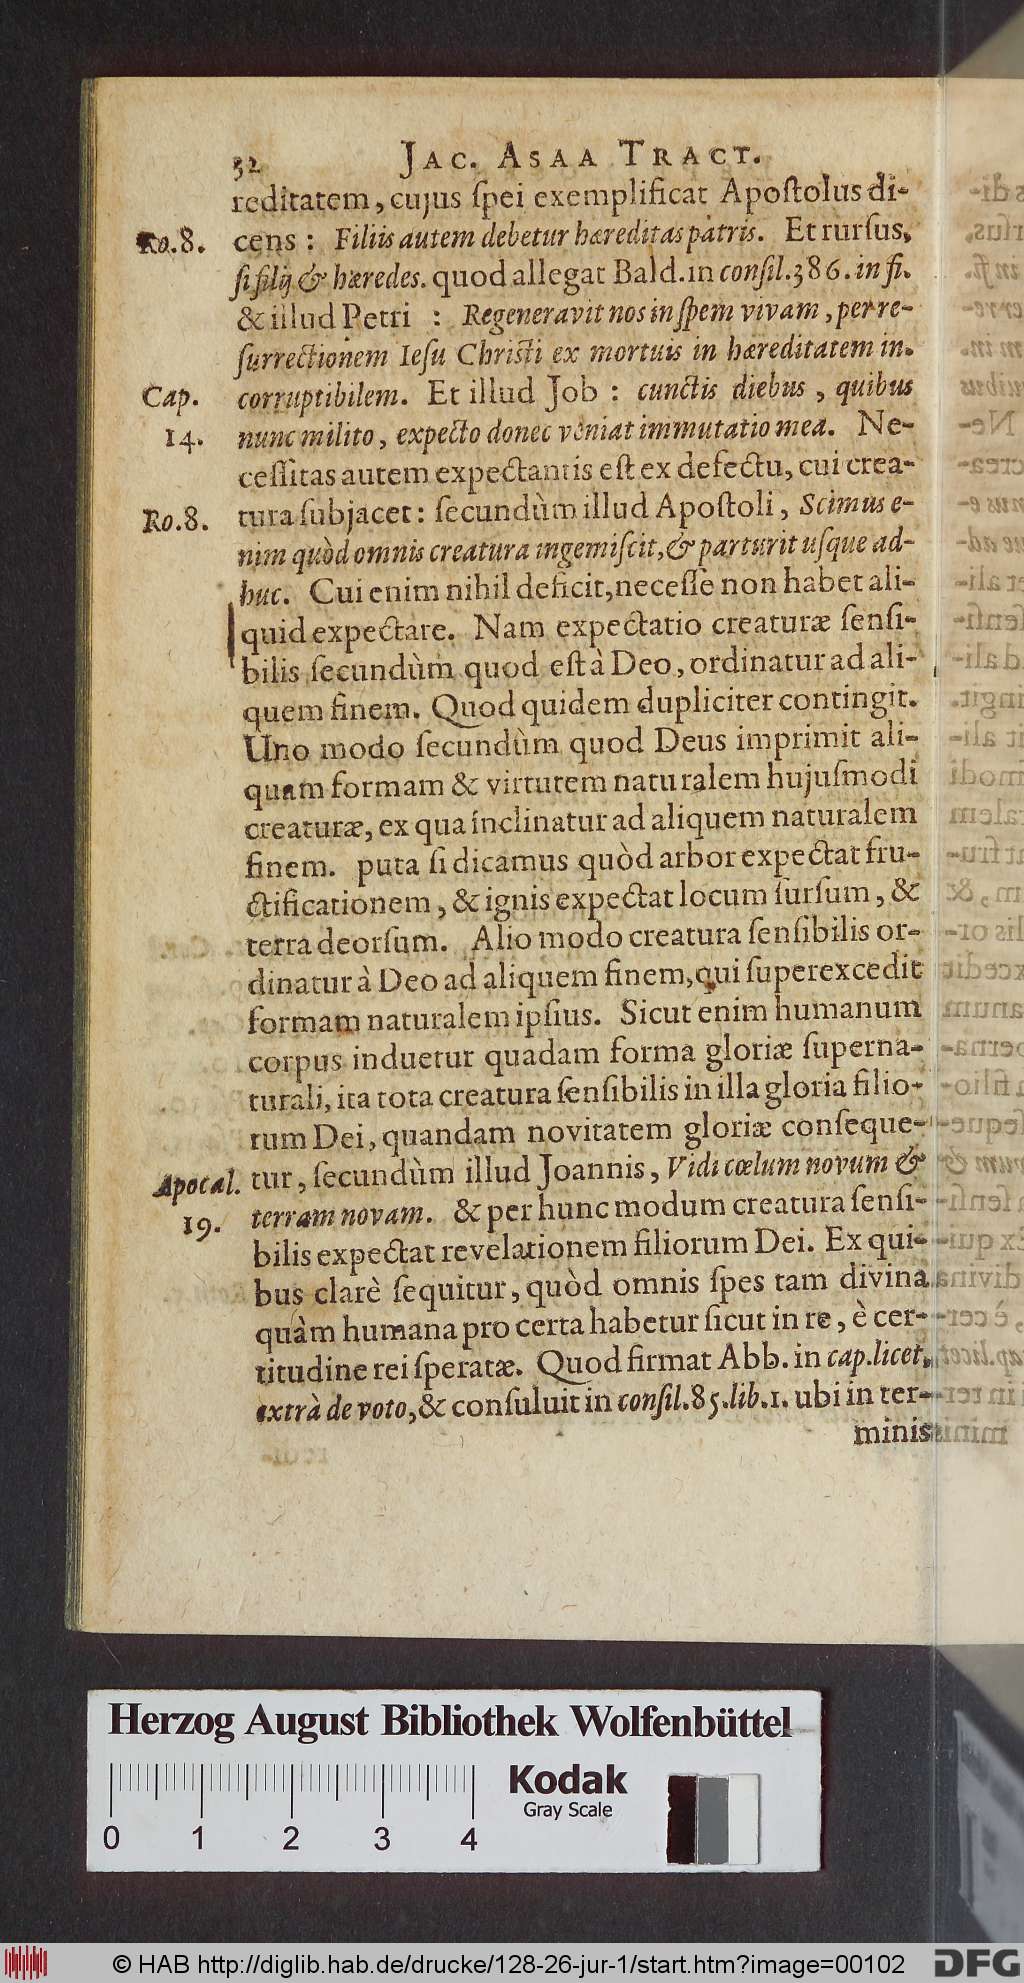 52 JAC. ASAA TRACT.
reditatem, cujus ſpei exemplificat Apoſtolus di-
Ro.8. cens : Filiis autem debetur hæreditas patris. Et rurſus,
ſi filij & hæredes. quod allegat Bald. in conſil. 386. in fi.
& illud Petri : Regeneravit nos in ſpem vivam, per re-
ſurrectionem Ieſu Chriſti ex mortuis in hæreditatem in-
Cap. corruptibilem. Et illud Job : cunctis diebus, quibus
14. nunc milito, expecto donec veniat immutatio mea. Ne-
ceſſitas autem expectantis eſt ex defectu, cui crea-
Ro.8. tura ſubjacet : ſecundùm illud Apoſtoli, Scimus e-
nim quòd omnis creatura ingemiſcit, & parturit uſque ad-
huc. Cui enim nihil deficit, neceſſe non habet ali-
quid expectare. Nam expectatio creaturæ ſenſi-
bilis ſecundùm quod eſt à Deo, ordinatur ad ali-
quem finem. Quod quidem dupliciter contingit.
Uno modo ſecundùm quod Deus imprimit ali-
quam formam & virtutem naturalem hujuſmodi
creaturæ, ex qua inclinatur ad aliquem naturalem
finem. puta ſi dicamus quòd arbor expectat fru-
ctificationem, & ignis expectat locum ſurſum, &
terra deorſum. Alio modo creatura ſenſibilis or-
dinatur à Deo ad aliquem finem, qui ſuperexcedit
formam naturalem ipſius. Sicut enim humanum
corpus induetur quadam forma gloriæ ſuperna-
turali, ita tota creatura ſenſibilis in illa gloria filio-
rum Dei, quandam novitatem gloriæ conſeque-
Apocal. tur, ſecundùm illud Joannis, Vidi cœlum novum &
19. terram novam. & per hunc modum creatura ſenſi-
bilis expectat revelationem filiorum Dei. Ex qui-
bus clarè ſequitur, quòd omnis ſpes tam divina
quàm humana pro certa habetur ſicut in re, è cer-
titudine rei ſperatæ. Quod firmat Abb. in cap. licet,
extrà de voto, & conſuluit in conſil. 85. lib. 1. ubi in ter-
minis
Herzog August Bibliothek Wolfenbüttel
Kodak
Gray Scale
0 1 2 3 4
© HAB http://diglib.hab.de/drucke/128-26-jur-1/start.htm?image=00102
DFG